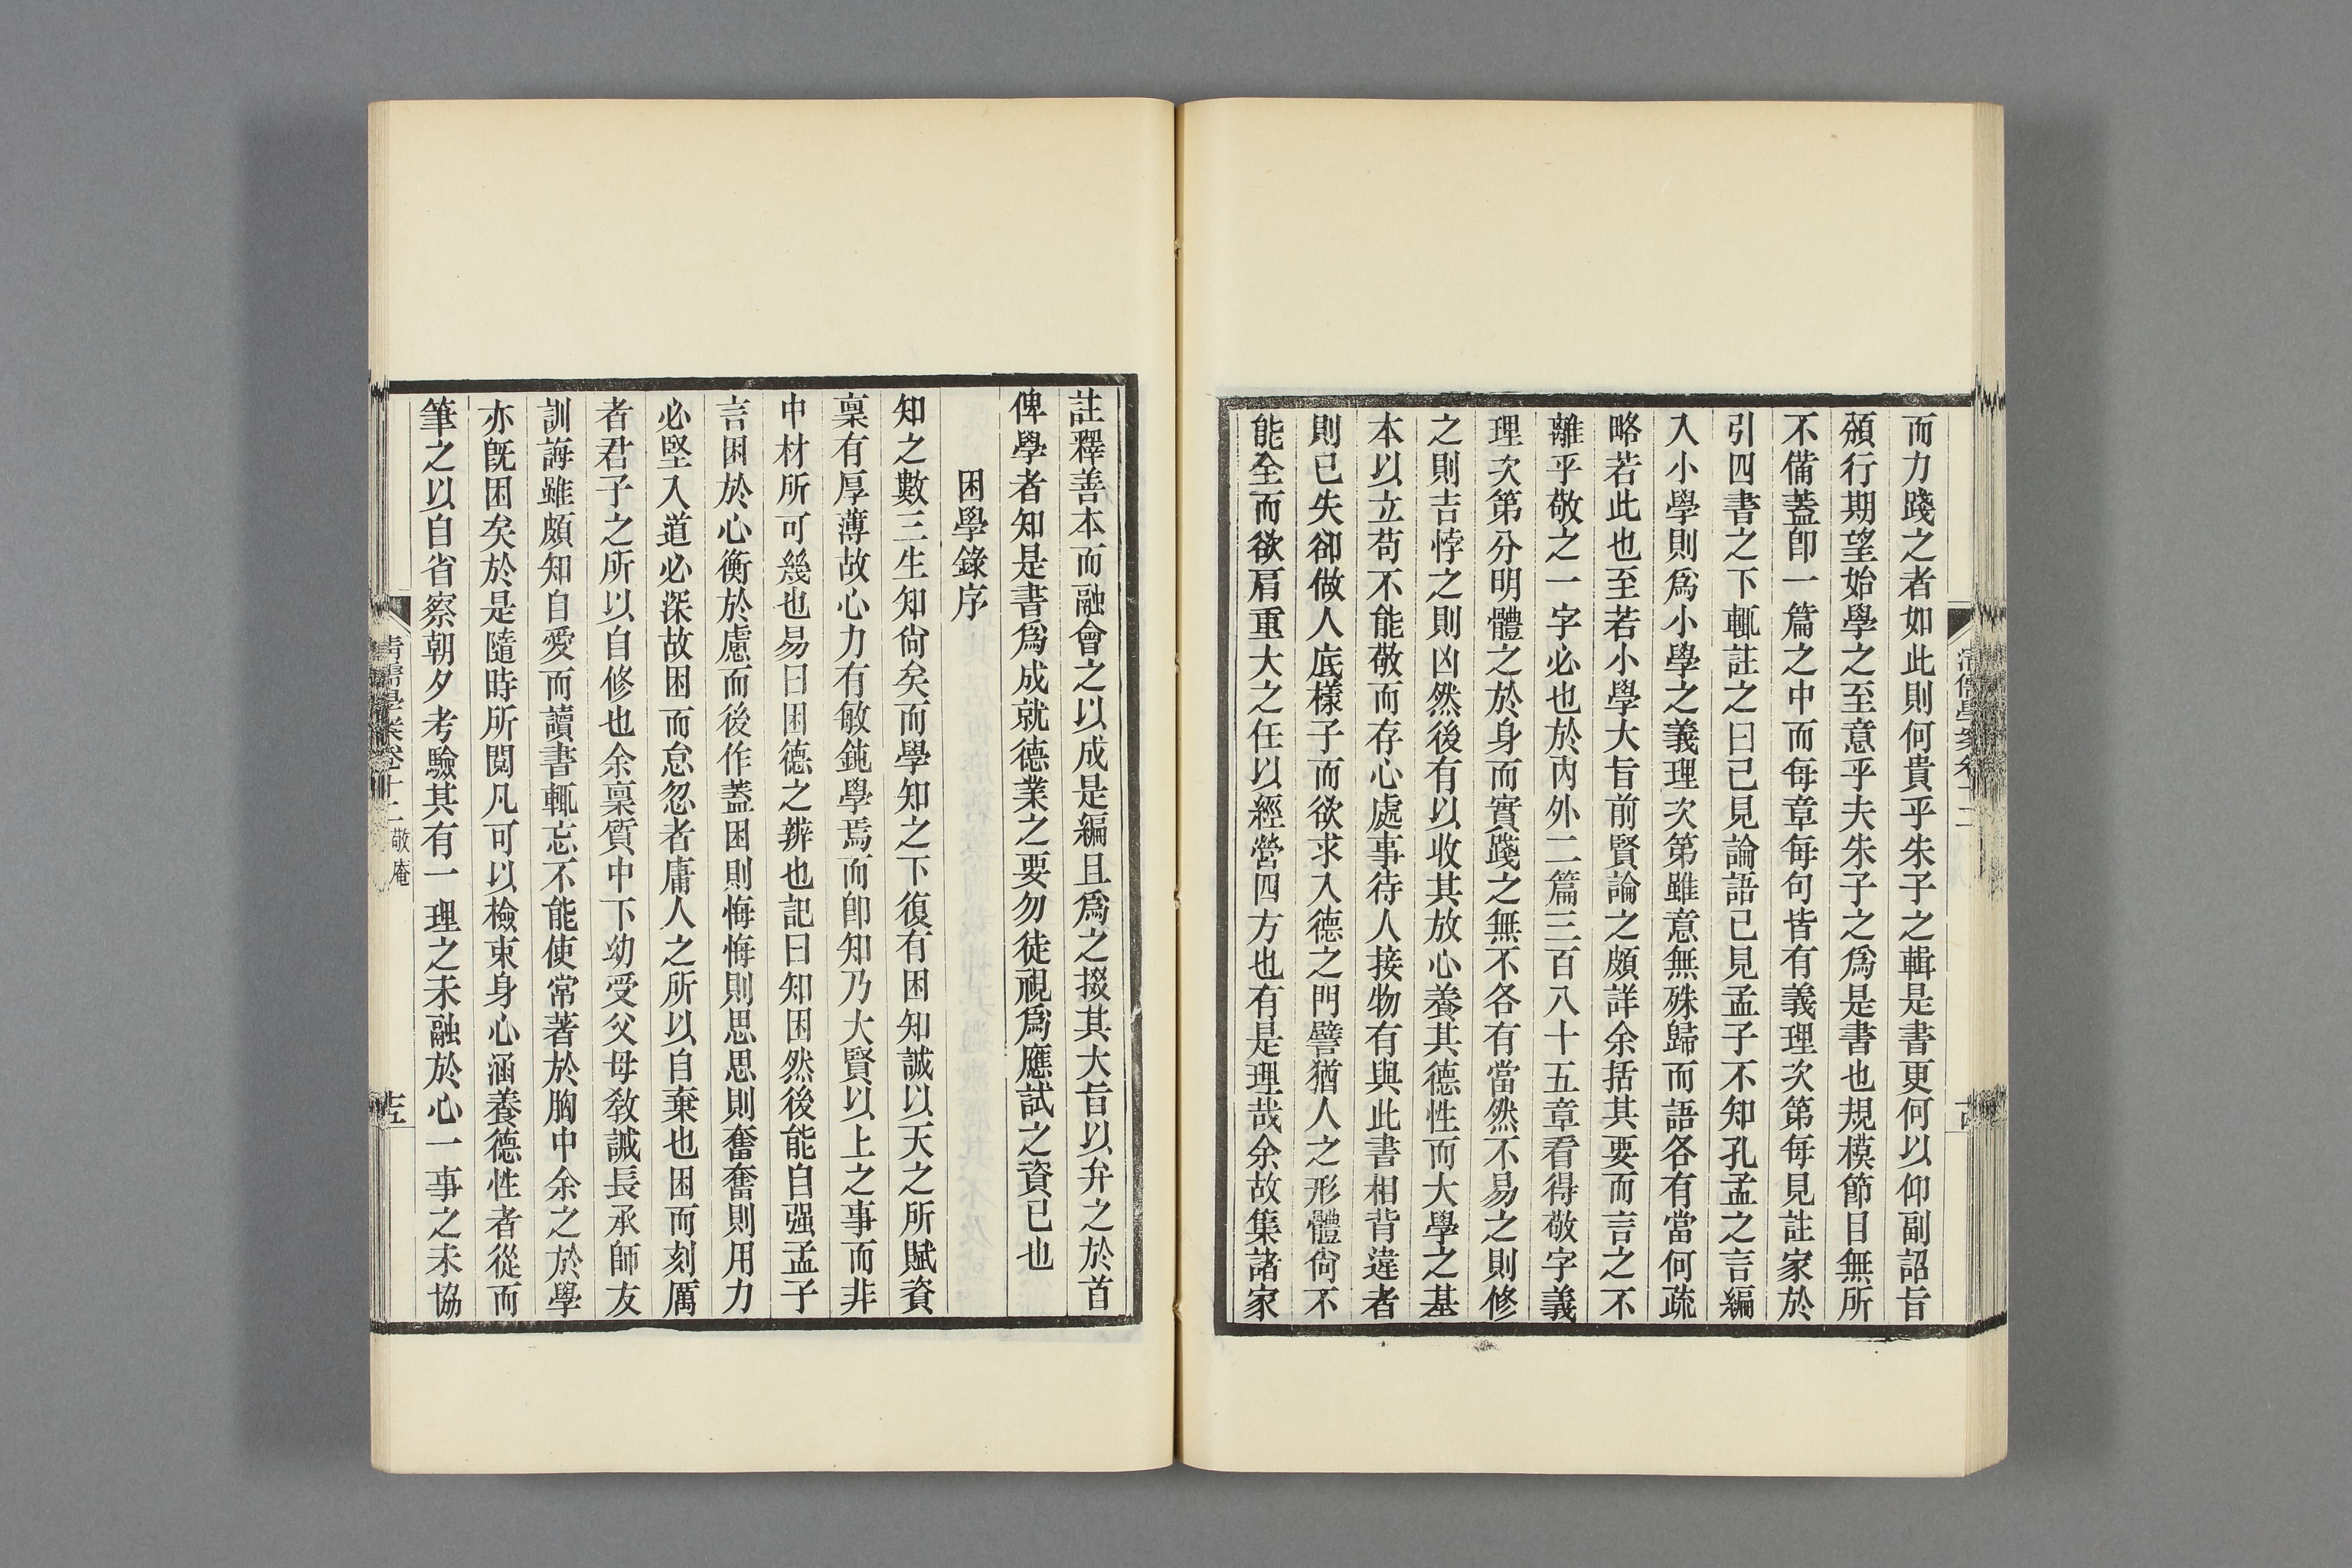 而力踐之者如此則何貴乎朱子之輯是書更何以仰副詔旨
頒行期望始學之至意乎夫朱子之爲是書也規模節目無所
不備蓋卽一篇之中而每章每句皆有義理次第每見註家於
引四書之下輒註之曰已見論語已見孟子不知孔孟之言編
入小學則爲小學之義理次第雖意無殊歸而語各有當何疏
略若此也至若小學大旨前賢論之頗詳余括其要而言之不
離乎敬之一字必也於內外二篇三百八十五章看得敬字義
理次第分明體之於身而實踐之無不各有當然不易之則修
之則吉悖之則凶然後有以收其放心養其德性而大學之基
本以立苟不能敬而存心處事待人接物有與此書相背違者
則已失卻做人底樣子而欲求入德之門譬猶人之形體尙不
能全而欲肩重大之任以經營四方也有是理哉余故集諸家
註釋善本而融會之以成是編且爲之掇其大旨以弁之於首
俾學者知是書爲成就德業之要勿徒視爲應試之資已也
困學錄序
知之數三生知尙矣而學知之下復有困知誠以天之所賦資
稟有厚薄故心力有敏鈍學焉而卽知乃大賢以上之事而非
中材所可幾也易曰困德之辨也記曰知困然後能自强孟子
言困於心衡於慮而後作蓋困則悔悔則思思則奮奮則用力
必堅入道必深故困而怠忽者庸人之所以自棄也困而刻厲
者君子之所以自修也余稟質中下幼受父母敎誡長承師友
訓誨雖頗知自愛而讀書輒忘不能使常著於胸中余之於學
亦旣困矣於是隨時所閱凡可以檢束身心涵養德性者從而
筆之以自省察朝夕考驗其有一理之未融於心一事之未協
清儒學案卷十二 敬庵